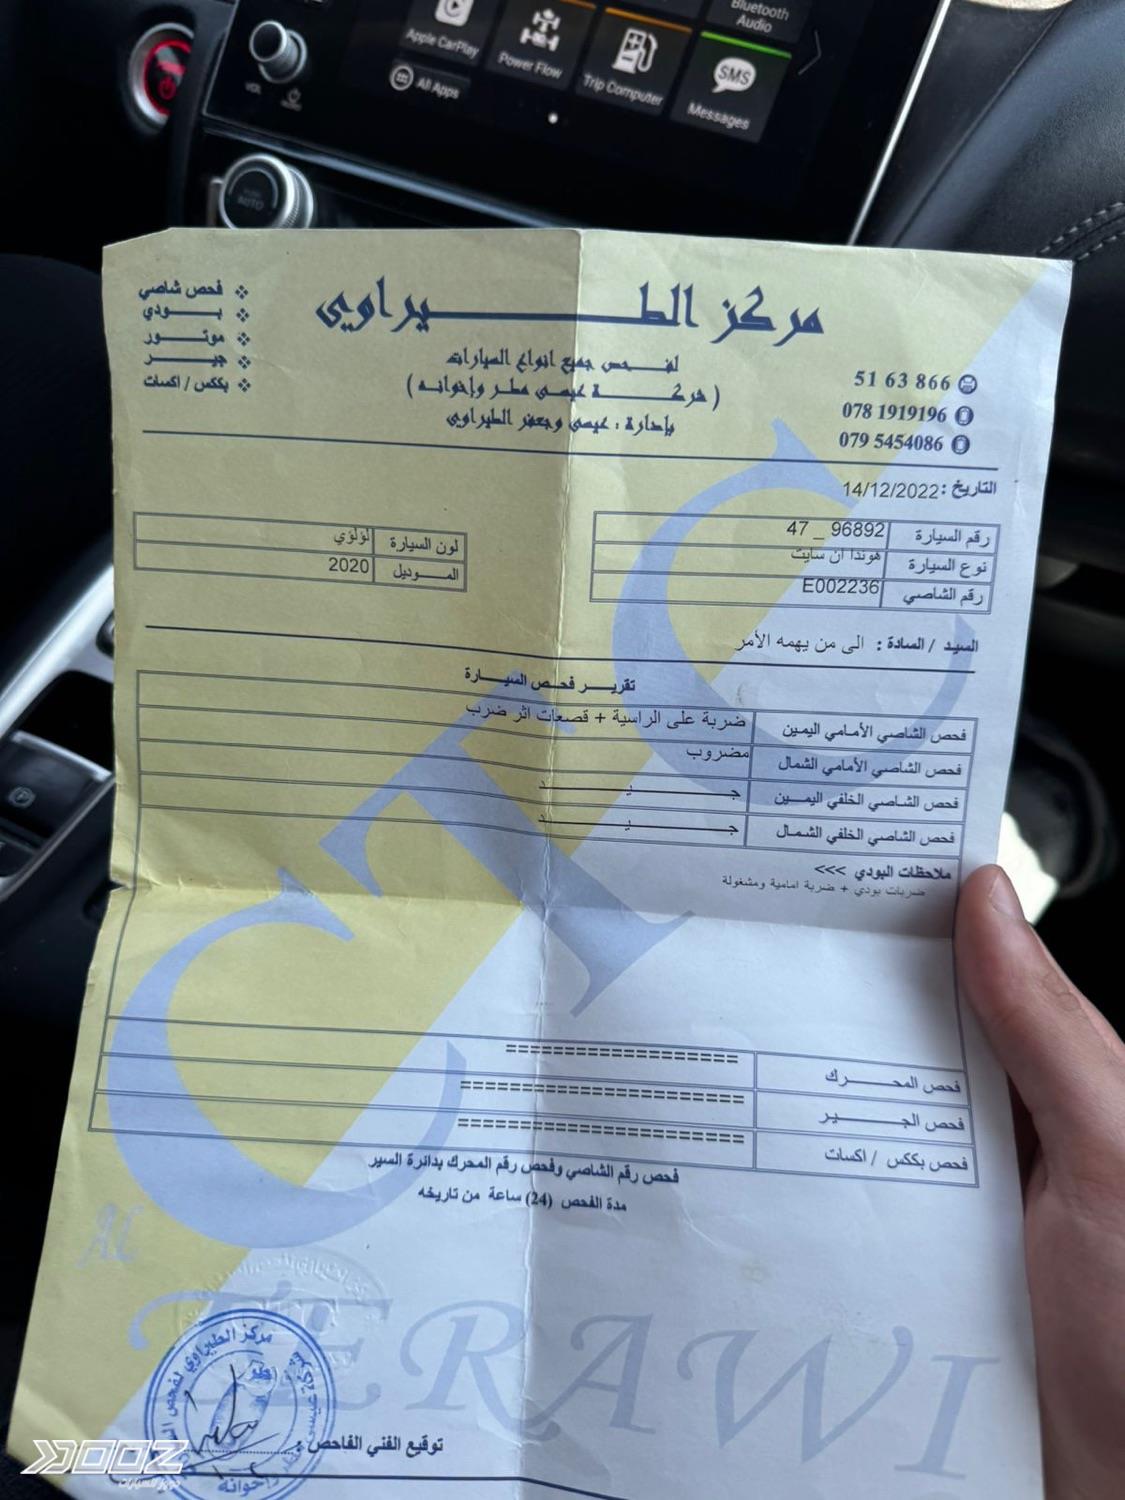 Bluetooth Audio
Apple CarPlay
Power Flow
Trip Computer
SMS
Messages
All Apps
VOL
AUTO
مركز الطيراوي
لفحص جميع انواع السيارات
( شركة عيسى مطر وإخوانه )
بإدارة : عيسى وجعفر الطيراوي
51 63 866
078 1919196
079 5454086
فحص شاصي
بودي
موتور
جير
بككس / اكسات
التاريخ : 14/12/2022
رقم السيارة 47 _ 96892
نوع السيارة هوندا ان سايت
رقم الشاصي E002236
لون السيارة لؤلؤي
الموديل 2020
السيد / السادة : الى من يهمه الأمر
تقرير فحص السيارة
فحص الشاصي الأمامي اليمين ضربة على الراسية + قصعات اثر ضرب
فحص الشاصي الأمامي الشمال مضروب
فحص الشاصي الخلفي اليمين جيد
فحص الشاصي الخلفي الشمال جيد
ملاحظات البودي >>>
ضربات بودي + ضربة امامية ومشغولة
فحص المحرك ==================
فحص الجير ======================
فحص بككس / اكسات ======================
فحص رقم الشاصي وفحص رقم المحرك بدائرة السير
مدة الفحص (24) ساعة من تاريخه
CTC
AL TERAWI
مركز الطيراوي لفحص
توقيع الفني الفاحص :
DOOZ
دووز للسيارات